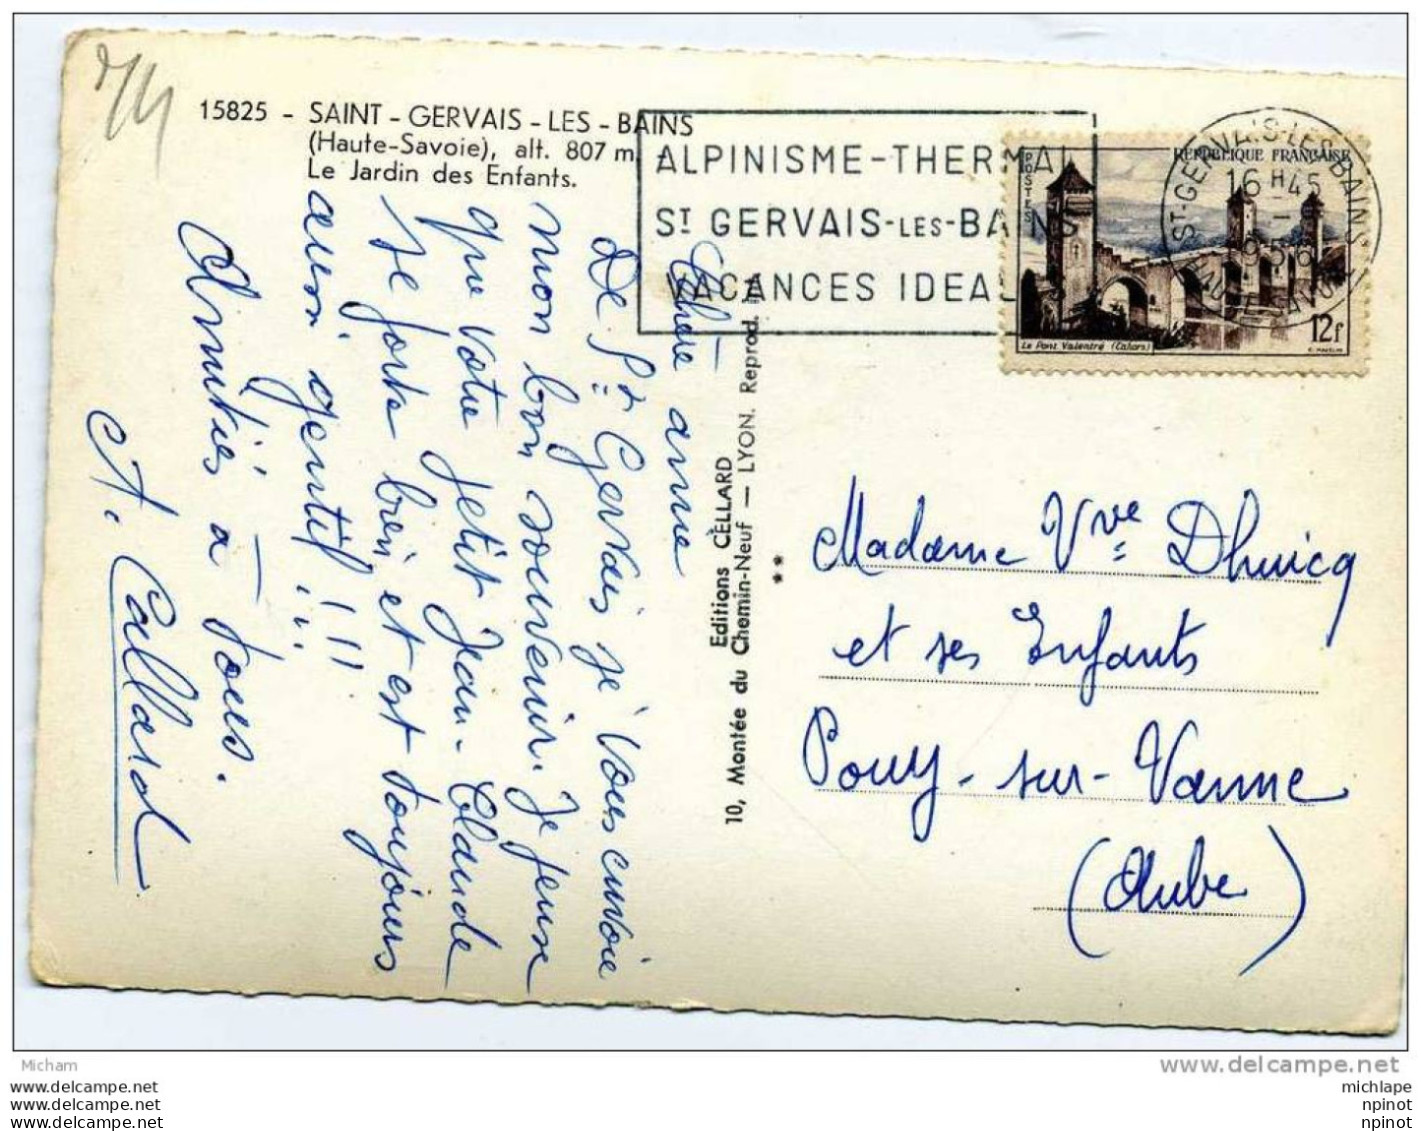 15825 - SAINT - GERVAIS - LES - BAINS
(Haute-Savoie), alt. 807 m.
Le Jardin des Enfants.
ALPINISME-THERMAL
ST GERVAIS-LES-BAINS
VACANCES IDEALES
ST-GERVAIS-LES-BAINS
16 H 45
1956
HAUTE-SAVOIE
REPUBLIQUE FRANÇAISE
POSTES
12f
Le Pont Valentré (Cahors)
Chère amie
De St Gervais je vous envoie
mon bon souvenir. Je pense
que votre petit Jean-Claude
se porte bien et est toujours
aussi gentil !!!
Amitiés à tous.
A. Callard
Editions CELLARD
10, Montée du Chemin-Neuf — LYON. Reprod. Int
**
Madame Vve Dhuicq
et ses Enfants
Pouy-sur-Vanne
(Aube)
Micham
delcampe.net
delcampe.net
delcampe.net
www.delcampe.net
michlape
npinot
npinot